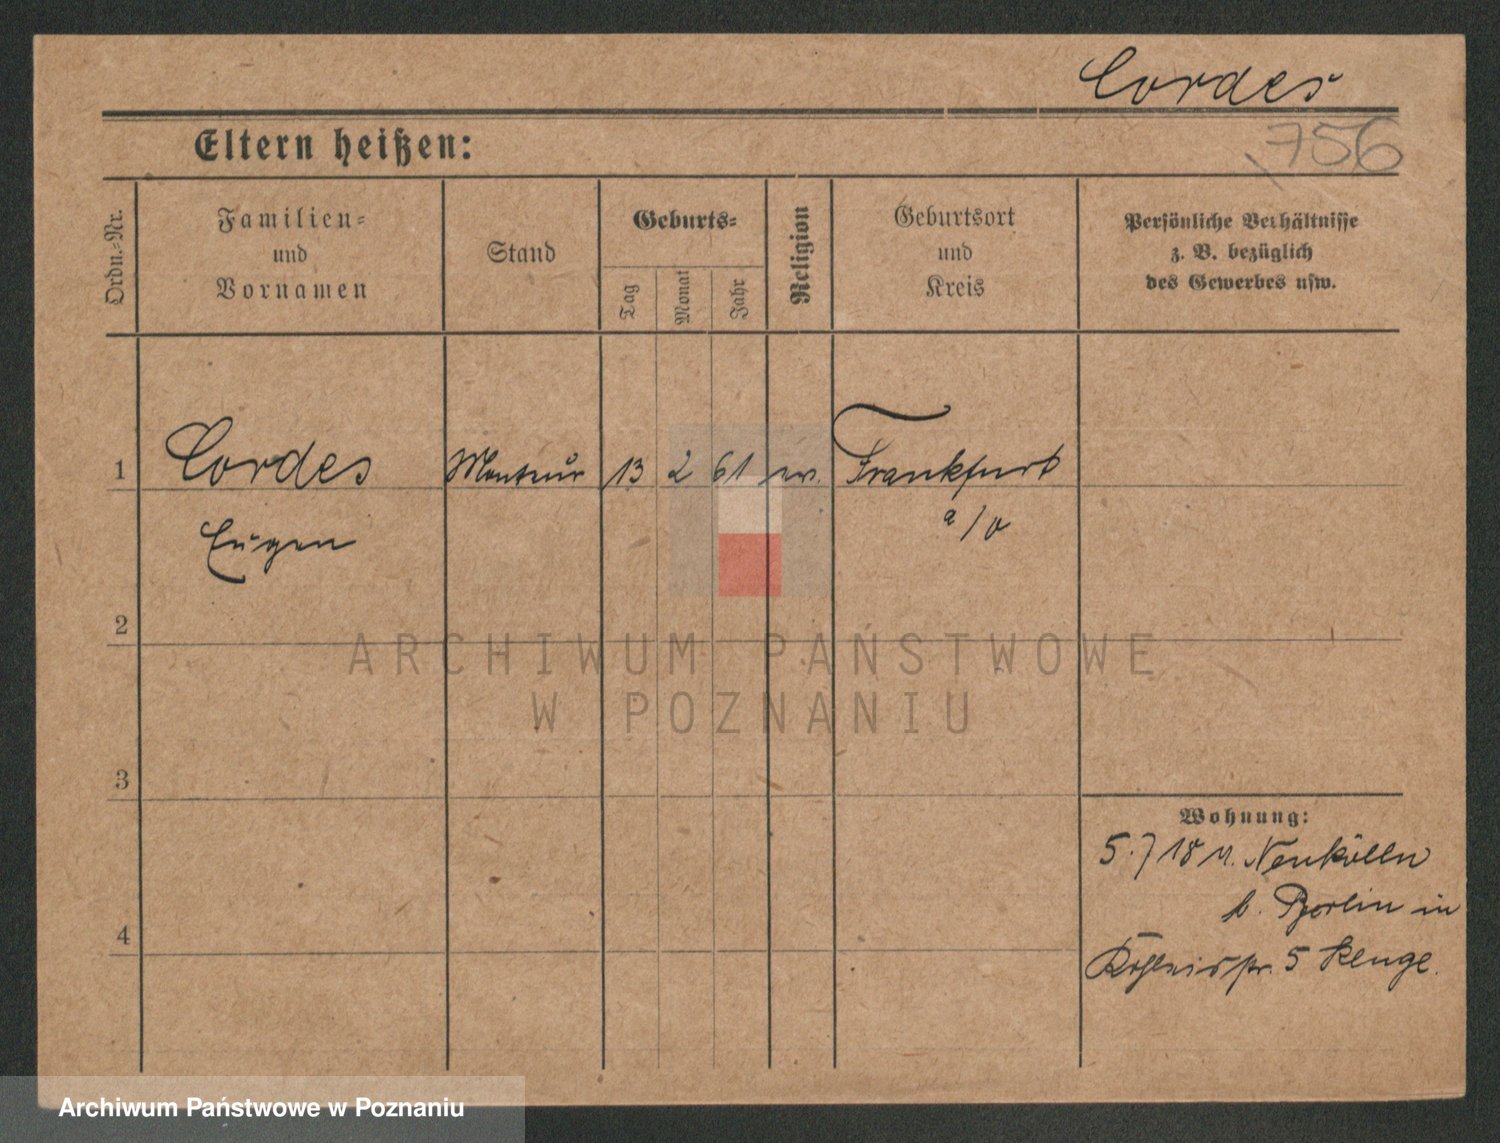 Cordes
Eltern heißen:
756
Ordn.-Nr.
Familien-
und
Vornamen
Stand
Geburts-
Tag
Monat
Jahr
Religion
Geburtsort
und
Kreis
Persönliche Verhältnisse
z. B. bezüglich
des Gewerbes usw.
1
Cordes
Monteur
13
2
61
ev.
Frankfurt
Eugen
a/o
2
ARCHIWUM PAŃSTWOWE
W POZNANIU
3
Wohnung:
5.7 18 n. Neukölln
b. Berlin in
4
5
Archiwum Państwowe w Poznaniu